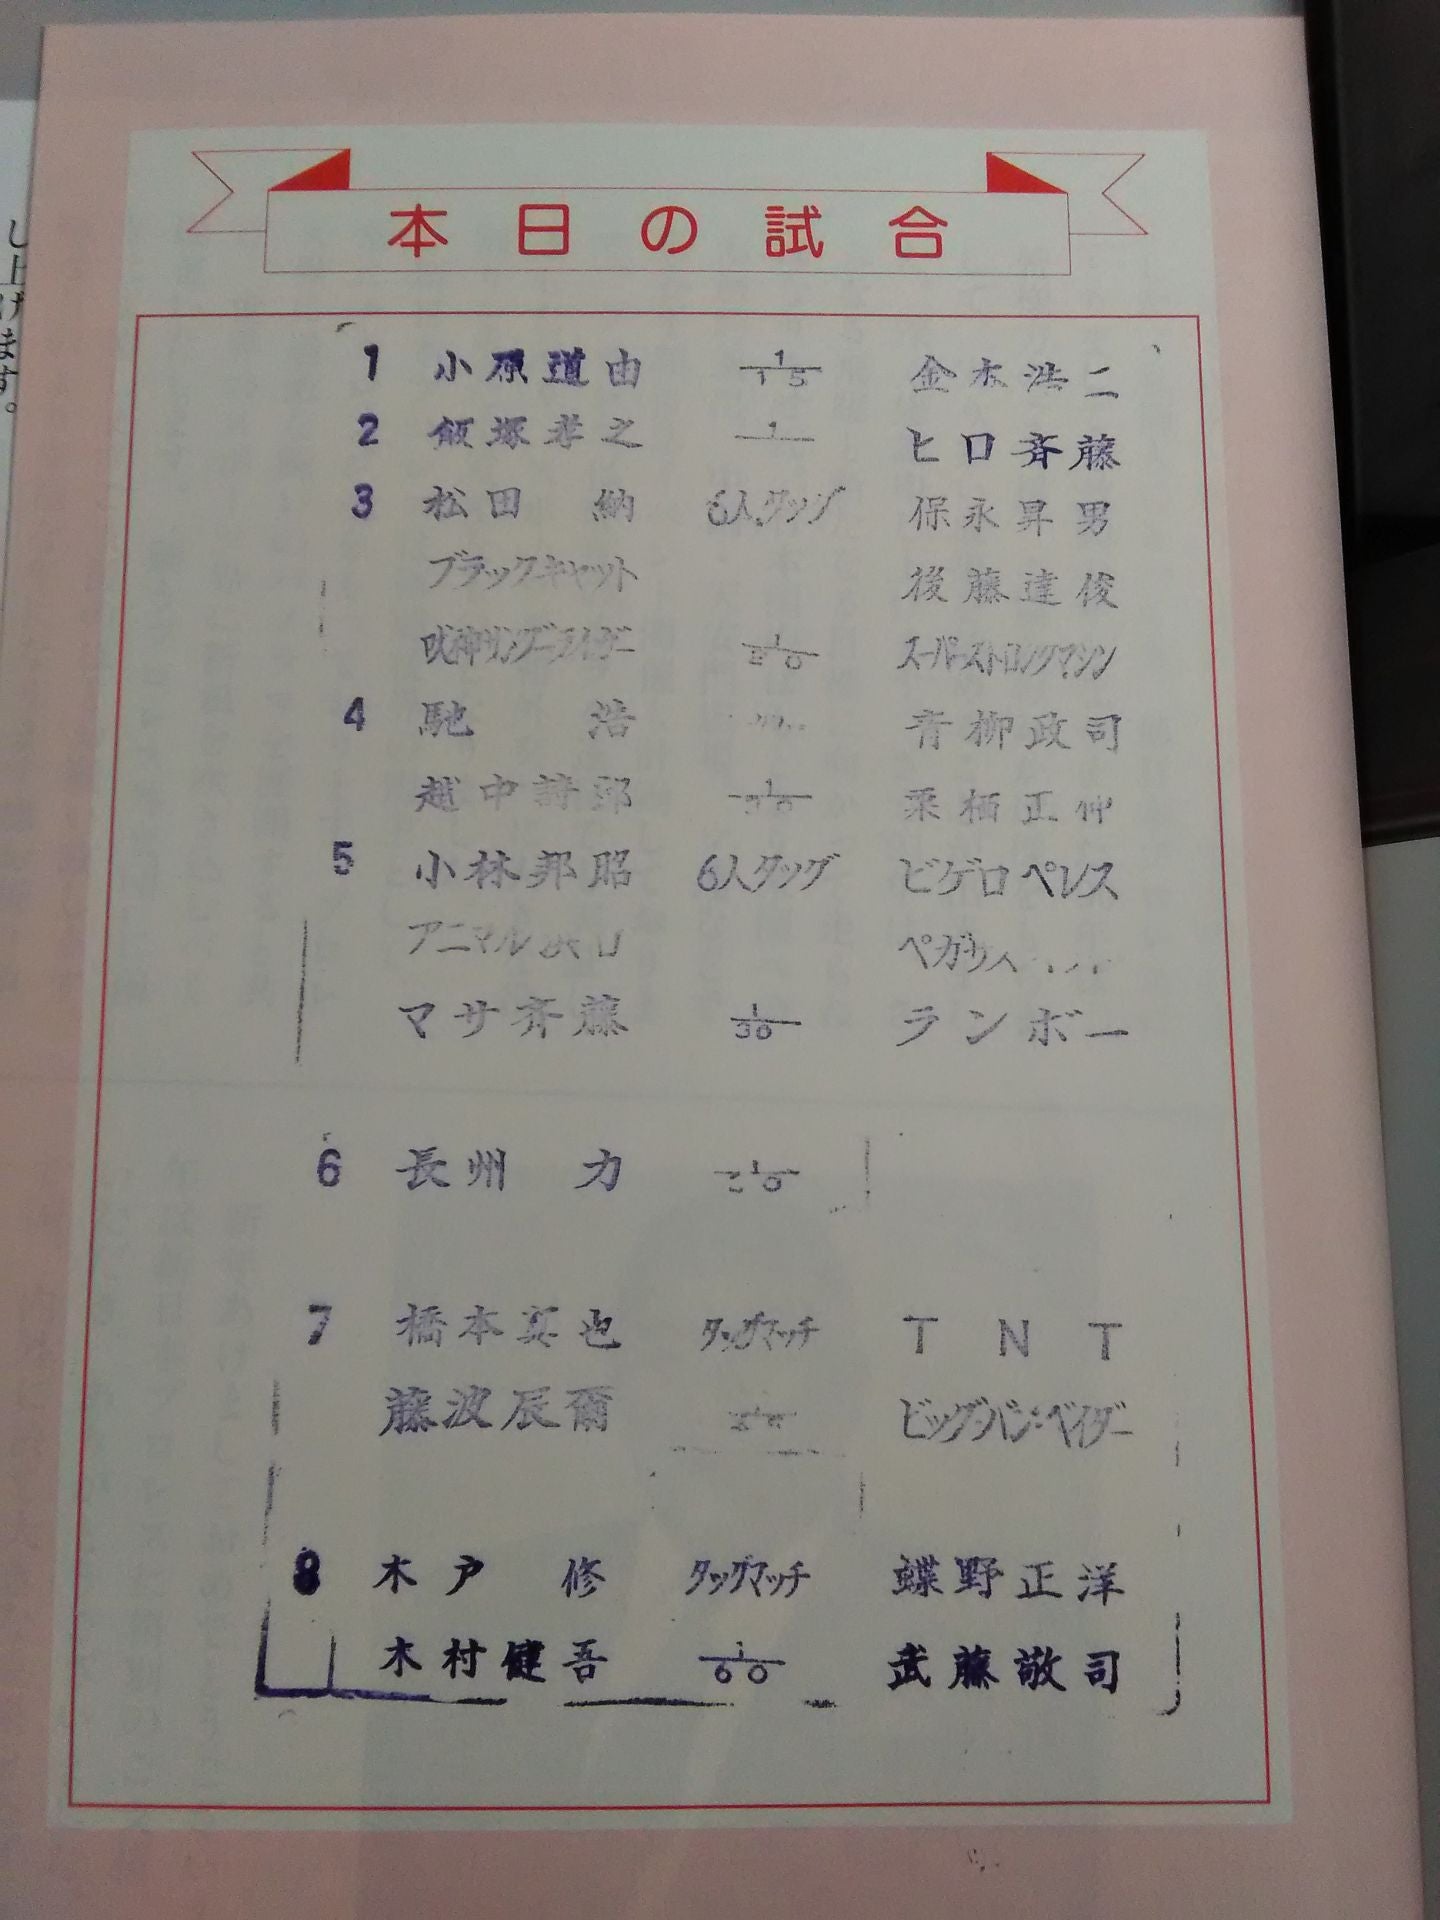 し上げます。
本日の試合
1 小原道由 1/15 金本浩二
2 飯塚孝之 1 ヒロ斉藤
3 松田 納 6人タッグ 保永昇男
ブラックキャット 後藤達俊
獣神サンダーライガー 1/20 スーパーストロングマシン
4 馳 浩 青柳政司
越中詩郎 1/30 栗栖正伸
5 小林邦昭 6人タッグ ビゲロペレス
アニマル浜口 ペガサス
マサ斉藤 1/30 ランボー
6 長州 力 1
7 橋本真也 タッグマッチ TNT
藤波辰爾 ビッグ・バン・ベイダー
8 木戸 修 タッグマッチ 蝶野正洋
木村健吾 1/60 武藤敬司